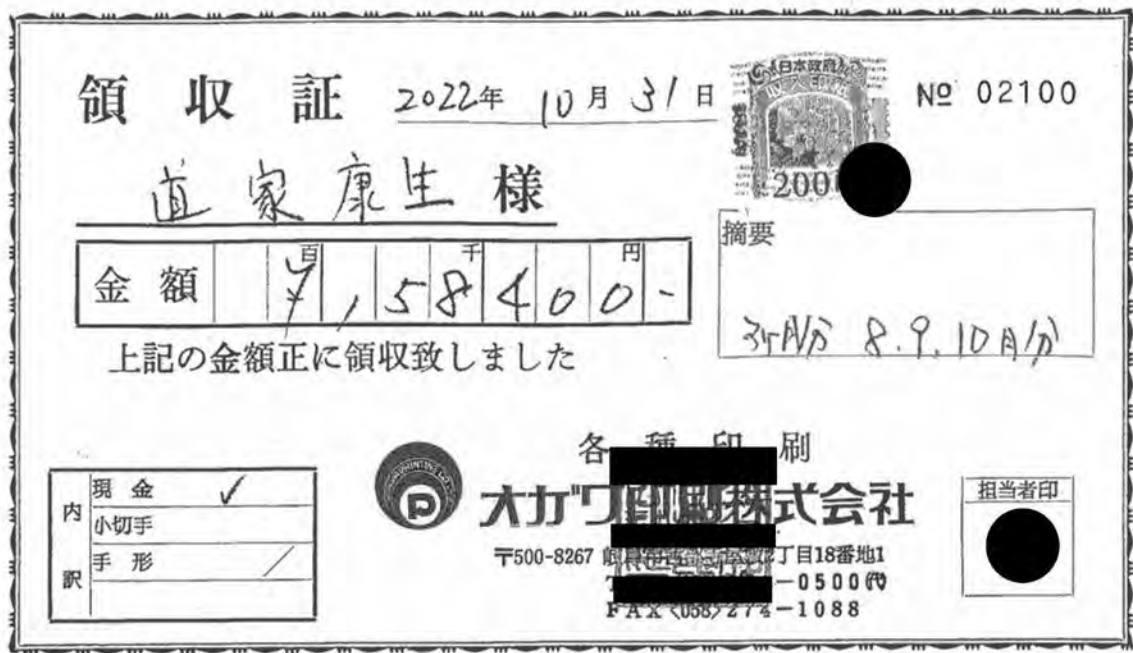 領収証 2022年 10月 31日
日本政府
200
№ 02100
直家康生 様
金額 百 千 円
¥,158400-
上記の金額正に領収致しました
摘要
3ヶ月分 8.9.10月分
内訳
現金 ✓
小切手
手形
各種印刷
P
オガワ印刷株式会社
〒500-8267
丁目18番地1
-0500代
FAX(058)274-1088
担当者印